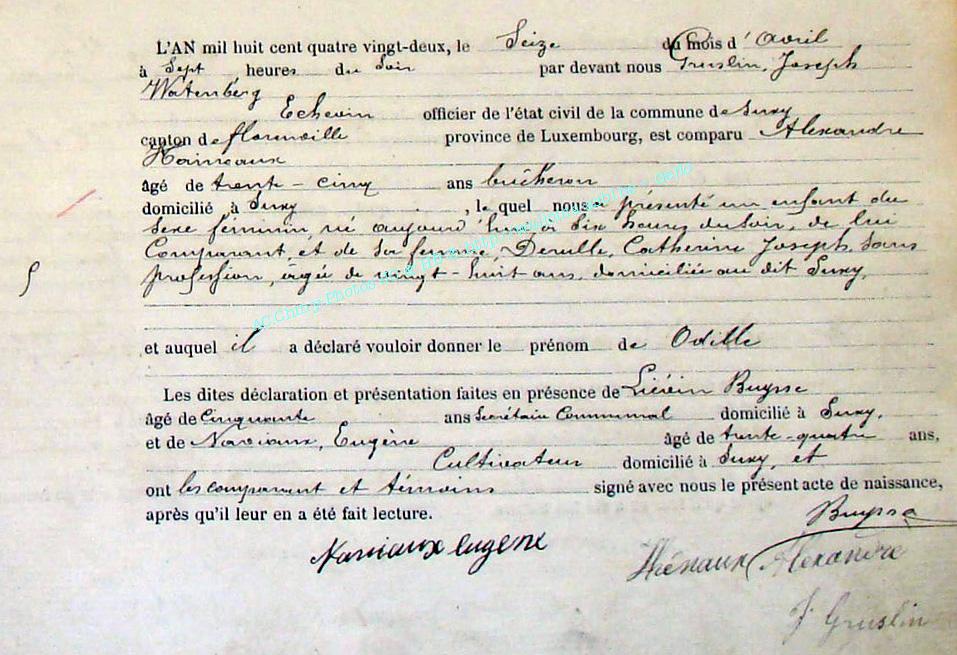 L'AN mil huit cent quatre vingt-deux, le Seize du mois d'Avril
à Sept heures du Soir par devant nous Gruslin, Joseph
Watenberg
Echevin officier de l'état civil de la commune de Suxy
canton de florenville province de Luxembourg, est comparu Alexandre
âgé de trente-cinq ans bûcheron
domicilié à Suxy, le quel nous a présenté un enfant du
sexe féminin, né aujourd'hui à Six heures du soir, de lui
Comparant et de sa femme, Catherine Joseph, Sans
profession, âgée de vingt-huit ans, domiciliée au dit Suxy,
et auquel il a déclaré vouloir donner le prénom de Odille
Les dites déclaration et présentation faites en présence de Buysse
âgé de Cinquante ans Secrétaire Communal domicilié à Suxy,
et de Naviaux, Eugène âgé de trente-quatre ans,
Cultivateur domicilié à Suxy, et
ont les comparant et témoins signé avec nous le présent acte de naissance,
après qu'il leur en a été fait lecture.
Buysse
Naviaux Eugene
Alexandre
J Gruslin